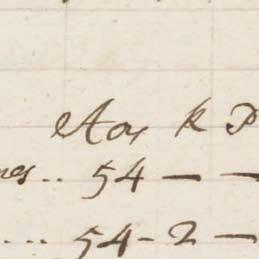 Acrs R P
nes.. 54 — —
.... 54-2 —